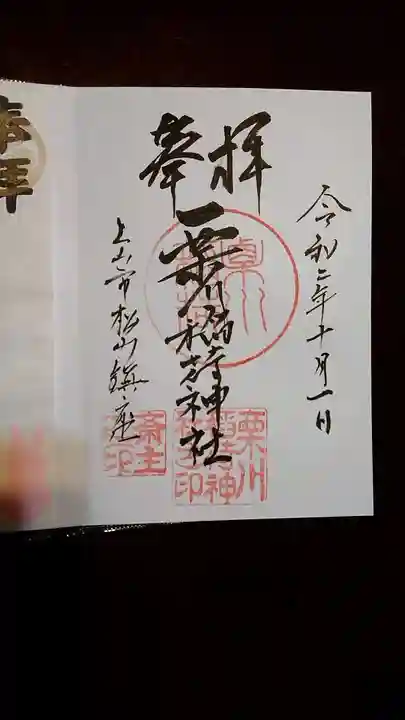 奉拝
令和二年十月一日
栗川稲荷神社
上山市松山鎮座
栗川
稲荷神
社之印
斎主
奉拝